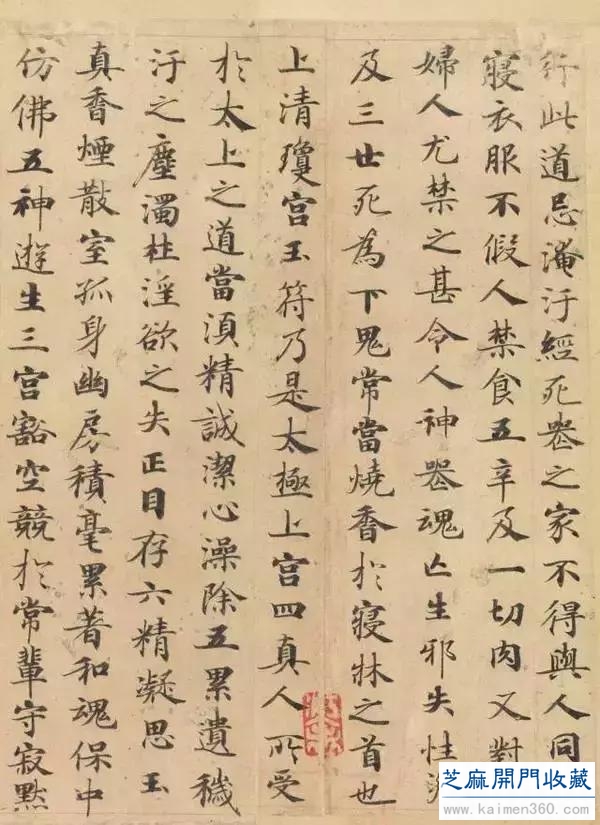 行此道忌淹汙經死喪之家不得與人同
寢衣服不假人禁食五辛及一切肉又對
婦人尤禁之甚令人神喪魂亡生邪失性
及三世死為下鬼常當燒香於寢牀之首也
上清瓊宮玉符乃是太極上宮四真人所受
於太上之道當須精誠潔心澡除五累遺穢
汙之塵濁杜淫欲之失正目存六精凝思玉
真香煙散室孤身幽房積毫累著和魂保中
仿佛五神遊生三宮豁空競於常輩守寂默
芝麻開門收藏
www.kaimen360.com